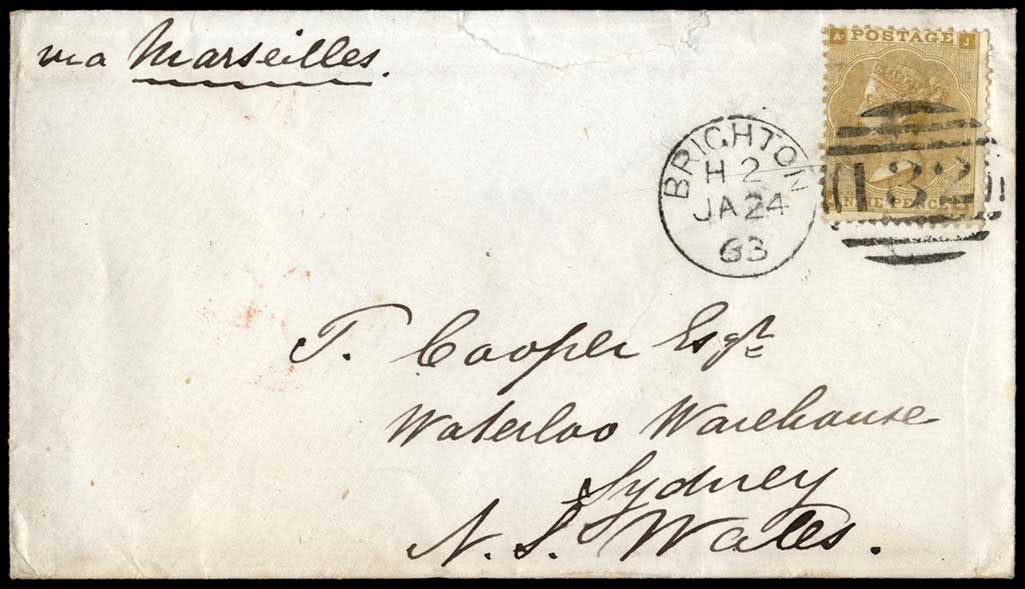 via Marseilles.
A POSTAGE J
BRIGHTON
H 2
JA 24
63
132
NINE PENCE
T. Cooper Esqr
Waterloo Warehouse
Sydney
N. S. Wales.